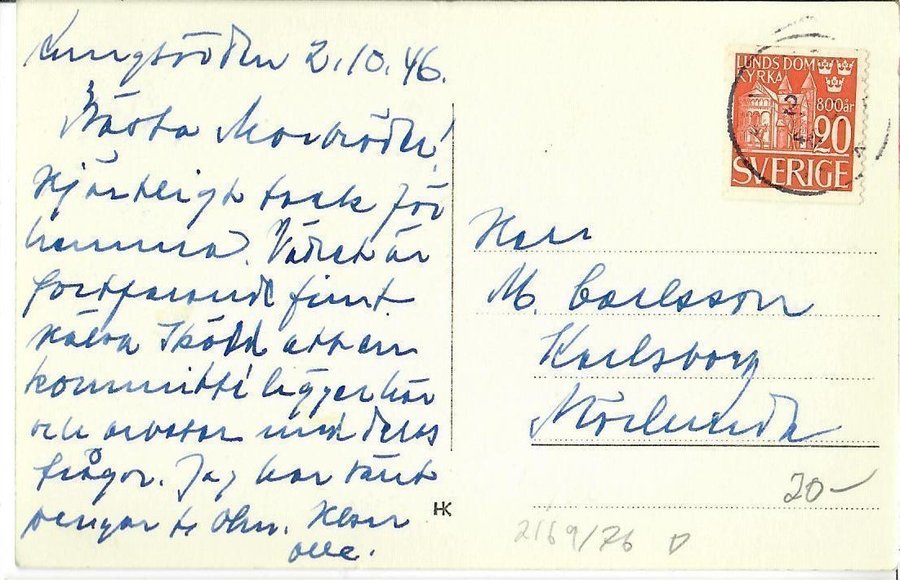 2.10.46.
Bästa Morbröder!
Hjärtligt tack för
hemma. Vädret är
fortfarande fint.
att en
kommitté ligger här
och arbetar med deras
frågor. Jag har sänt
pengar t. Olle.
LUNDS DOM
KYRKA
800 år
20
SVERIGE
Herr
M. Carlsson
Karlsborg
Mörlunda
HK
20-
2169/76